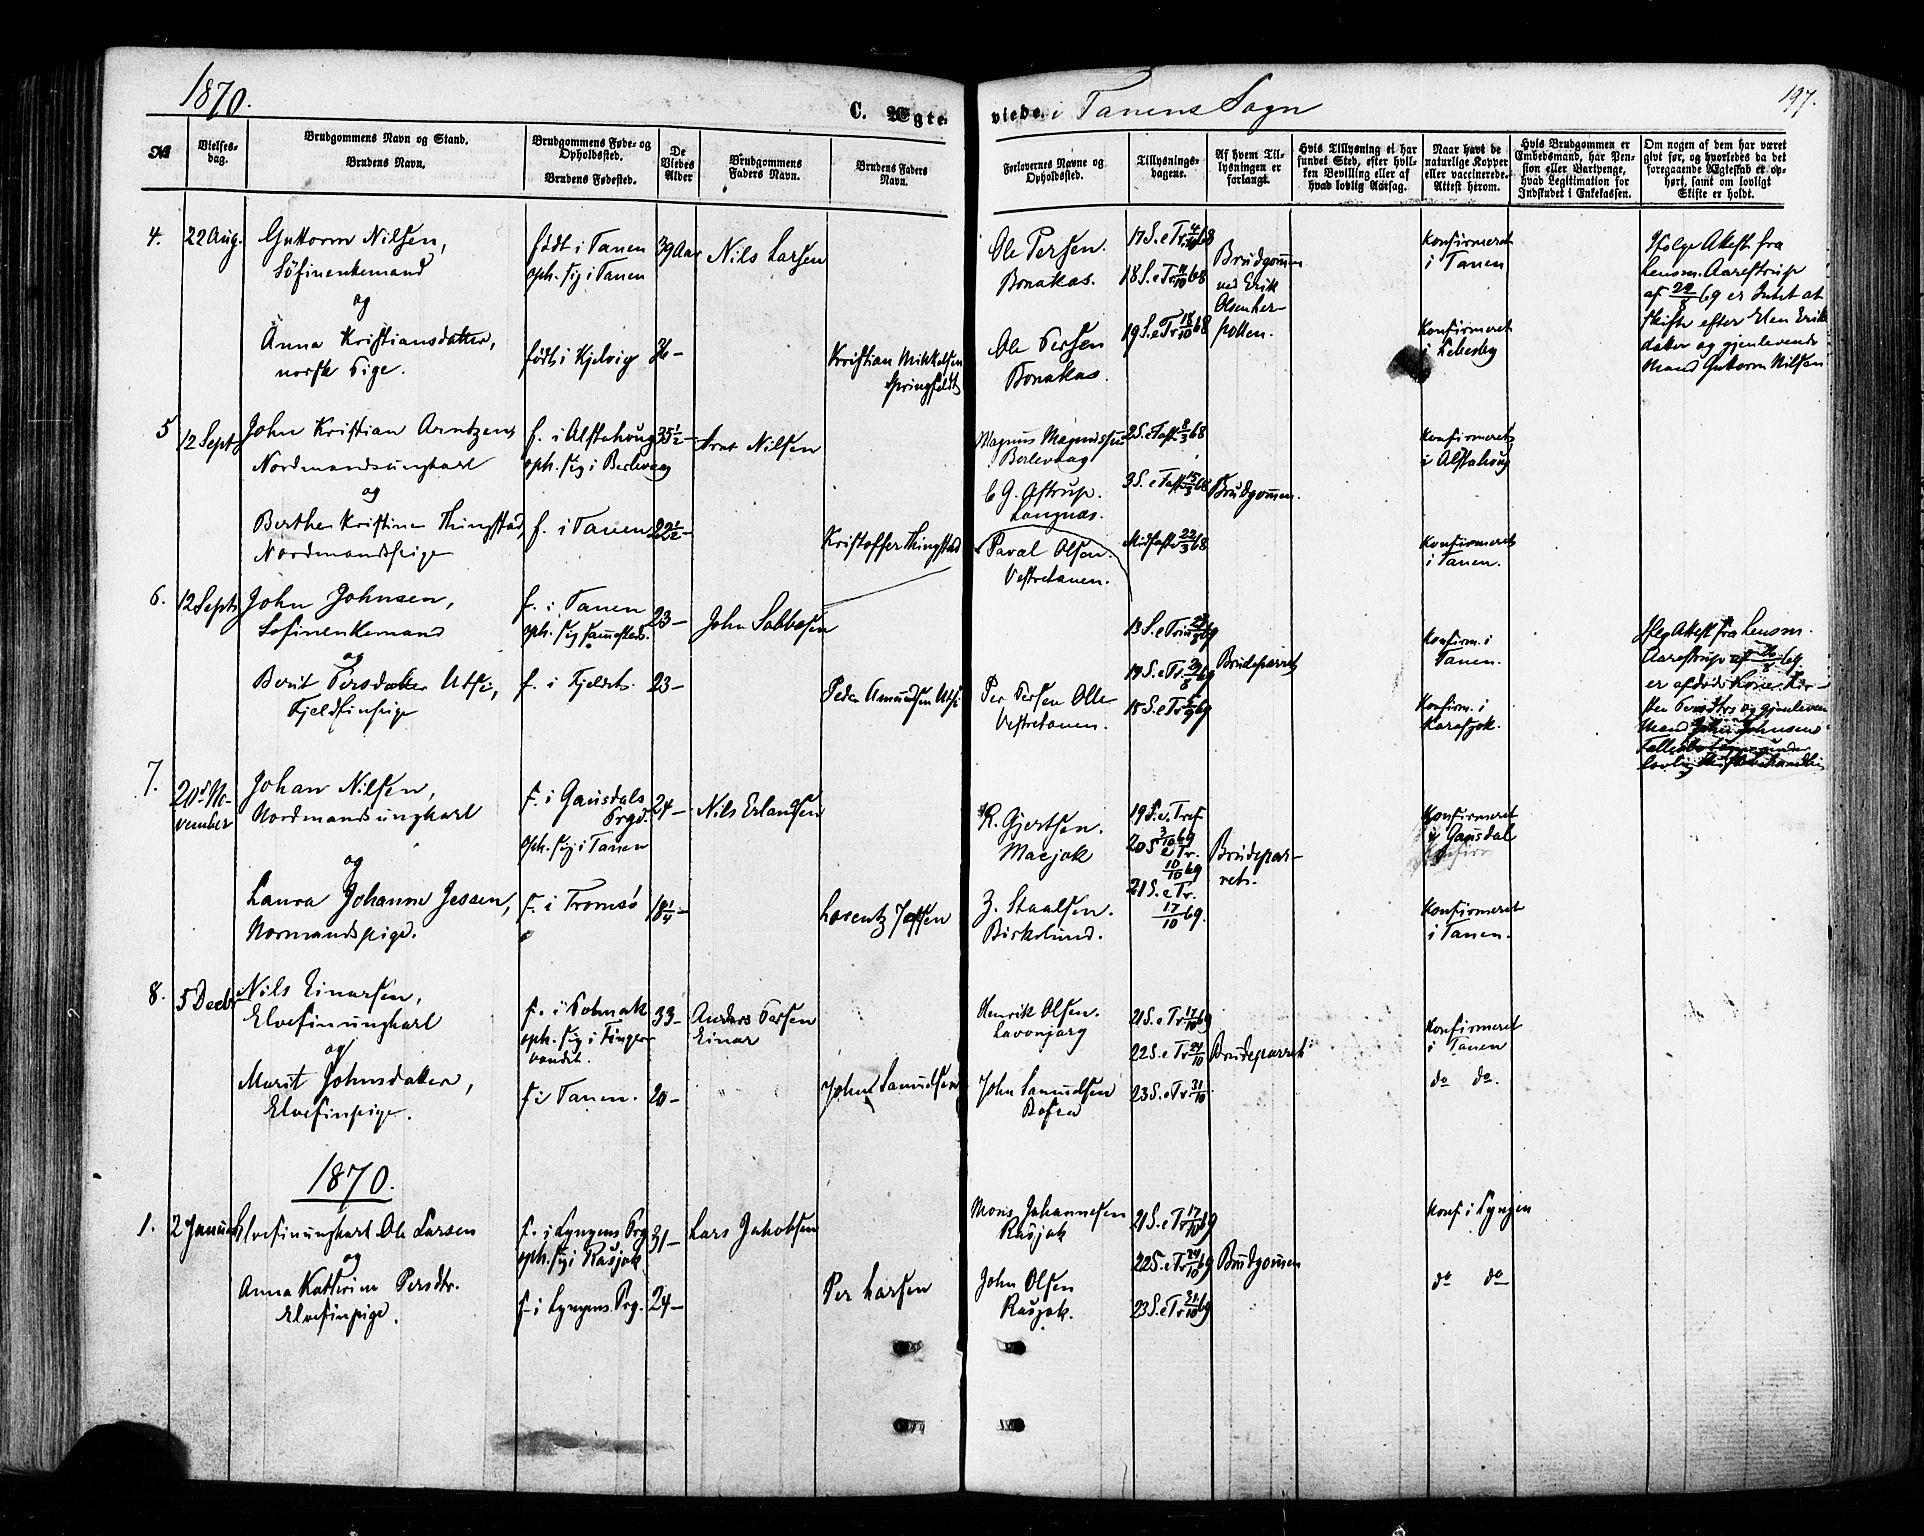 1870.
C. Ægte
viede i Tanens Sogn
197.
№
Vielses-
dag.
Brudgommens Navn og Stand.
Brudens Navn.
Brudgommens Føde- og
Opholdssted.
Brudens Fødested.
De
Viedes
Alder
Brudgommens
Faders Navn.
Brudens Faders
Navn.
Forlovernes Navne og
Opholdssted.
Tillysnings-
dagene.
Af hvem Til-
lysningen er
forlangt.
Hvis Tillysning ei har
fundet Sted, efter hvil-
ken Bevilling eller af
hvad lovlig Aarsag.
Naar havt de
naturlige Kopper
eller vaccinerede.
Attest herom.
Hvis Brudgommen er
Embedsmand, har Pen-
sion eller Vartpenge,
hvad Legitimation for
Indskudet i Enkekassen.
Om nogen af dem har været
givt før, og hvorledes da det
foregaaende Ægteskab er op-
hørt, samt om lovligt
Skifte er holdt.
4.
22 Aug.
Guttorm Nilsen,
Söfinenkemand
og
Anna Kristiansdatter,
norsk Pige.
født i Tanen
oph. sig i Tanen
født i Kjelvig
39 Aar
36 –
Nils Larsen
Kristian Mikkelsen
Springfeldt
Ole Persen.
Bonakas.
Ole Persen
Bonakas.
17 S. e Tr. 4/10 68
18 S. e Tr 11/10 68
19 S. e Tr 18/10 68
Brudgommen
ved Erik
Olsen her-
Konfirmeret
i Tanen
Konfirmeret
i Lebesby
Ifølge Attest fra
Lensm. Aarestrup
af 29/8 69 er Intet at
skifte efter Elen Eriks
datter og gjenlevende
Mand Guttorm Nilsen
5
12 Septr
John Kristian Arntzen,
Nordmandsungkarl
og
Berthe Kristine Thingstad,
Nordmandspige
f. i Alstahoug
oph. sig i Berlevaag
f. i Tanen
35 1/2 –
22 1/2 –
Arnt Nilsen
Kristoffer Thingstad
Magnus Magnussen
Berlevaag
C G. Astrup.
Langnæs.
Paval Olsen.
Vestretanen.
2 S. e Fast 8/3 68
3 S. e Fast 15/3 68
Midfaste 22/3 68
Brudgommen.
Konfirmeret
i Alstahoug
Konfirmeret
i Tanen.
6.
12 Septr
John Johnsen,
Søfinenkemand
og
Berit Persdatter Utsi,
Fjeldfinpige
f. i Tanen
oph. sig sammesteds.
f. i Fjeldet.
23 –
23 –
John Sabbasen
Peder Amundsen Utsi
Per Persen Olle
Vestretanen.
Brudeparret
Konfirm. i
Tanen.
Konfirm. i
Karasjok.
Ifølg Attest fra Lensm.
Aarestrup af 26/8 69.
er afdøde Kone Kir-
sten Persdtrs og gjenleven
Mand John Johnsens
7.
20de No-
vember
Johan Nilsen,
Nordmandsungkarl
og
Laura Johanne Jessen,
Normandspige.
f. i Gausdals
Prgd.
oph. sig i Tanen
f. i Tromsö
24 –
18 1/4 –
Nils Erlandsen
Lorentz Jessen
K. Gjertsen.
Masjok
Z. Staalsen.
Birkelund.
19 S. e. Tref
3/10 69
20 S e Tr.
10/10 69
21 S. e Tr.
17/10 69.
Brudepar-
ret.
Konfirmeret
i Gausdal
Konfirmeret
i Tanen.
8.
5 Decbr
Nils Einarsen,
Elvefinungkarl
og
Marit Johnsdatter,
Elvefinpige.
f. i Polmak
oph. sig i Finger
vandet.
f i Tanen.
33 –
20 –
Anders Persen
Einar
John Samuelsen
Henrik Olsen.
Lavonjarg
John Samuelsen
21 S. e Tr 17/10 69
22 S. e Tr 24/10
23 S. e Tr. 31/10
Brudeparret
Konfirmeret
i Tanen
do do.
1870.
1.
2 Januar
Elvefinungkarl Ole Larsen
og
Anna Kathrine Persdtr.
Elvefinpige.
f. i Lyngens Prg
oph. sig i Rasjok
f. i Lyngens Prg.
31 –
24 –
Lars Jakobsen
Per Larsen
Mons Johannesen
Rasjok
John Olsen
Rasjok.
21 S. e Tr 17/10 69
22 S. e Tr 24/10 69
23 S. e Tr 31/10 69
Brudgommen
Konf i Lyngen
do do